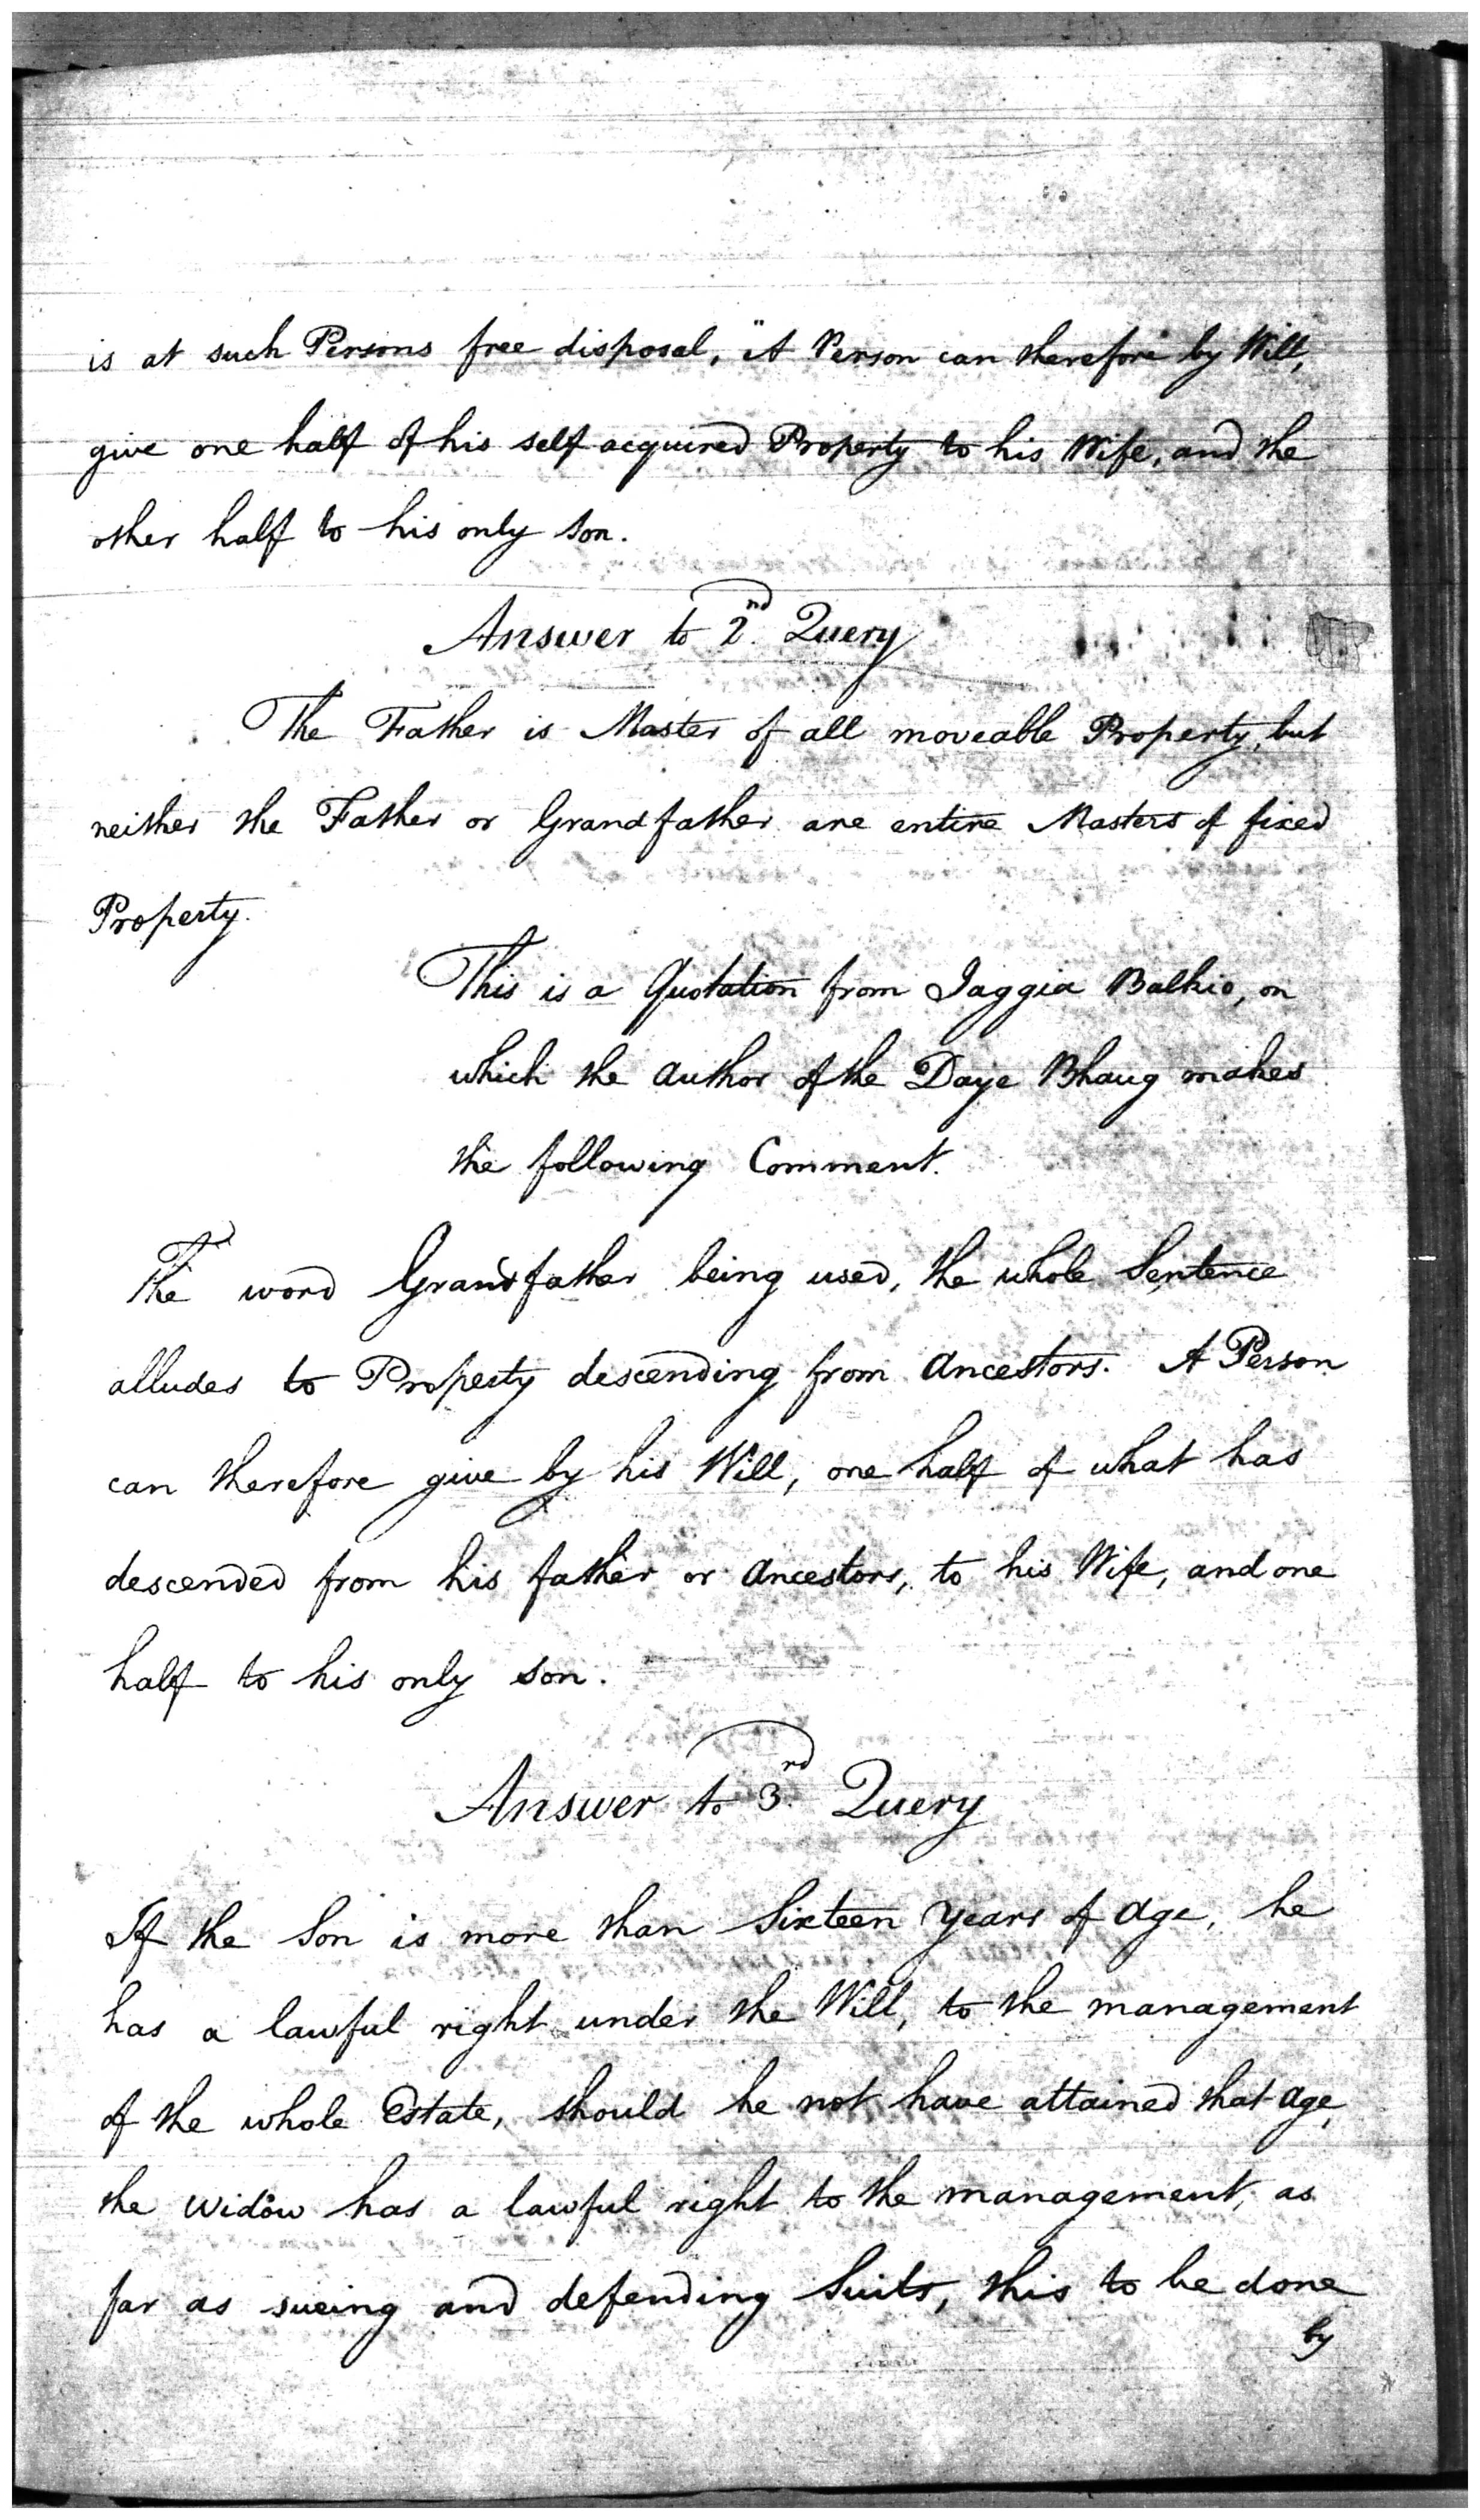 is at such Persons free disposal, "A Person can therefore by Will,
give one half of his self acquired Property to his Wife, and the
other half to his only Son.
Answer to 2nd Query
The Father is Master of all moveable Property, but
neither the Father or Grandfather are entire Masters of fixed
Property.
This is a Quotation from Jaggia Balkio, on
which the Author of the Daye Bhaug makes
the following Comment.
The word Grandfather being used, the whole Sentence
alludes to Property descending from Ancestors. A Person
can therefore give by his Will, one half of what has
descended from his father or Ancestors, to his Wife, and one
half to his only son.
Answer to 3rd Query
If the Son is more than Sixteen years of Age, he
has a lawful right under the Will, to the management
of the whole Estate, should he not have attained that Age,
the widow has a lawful right to the management, as
far as sueing and defending Suits, this to be done
by